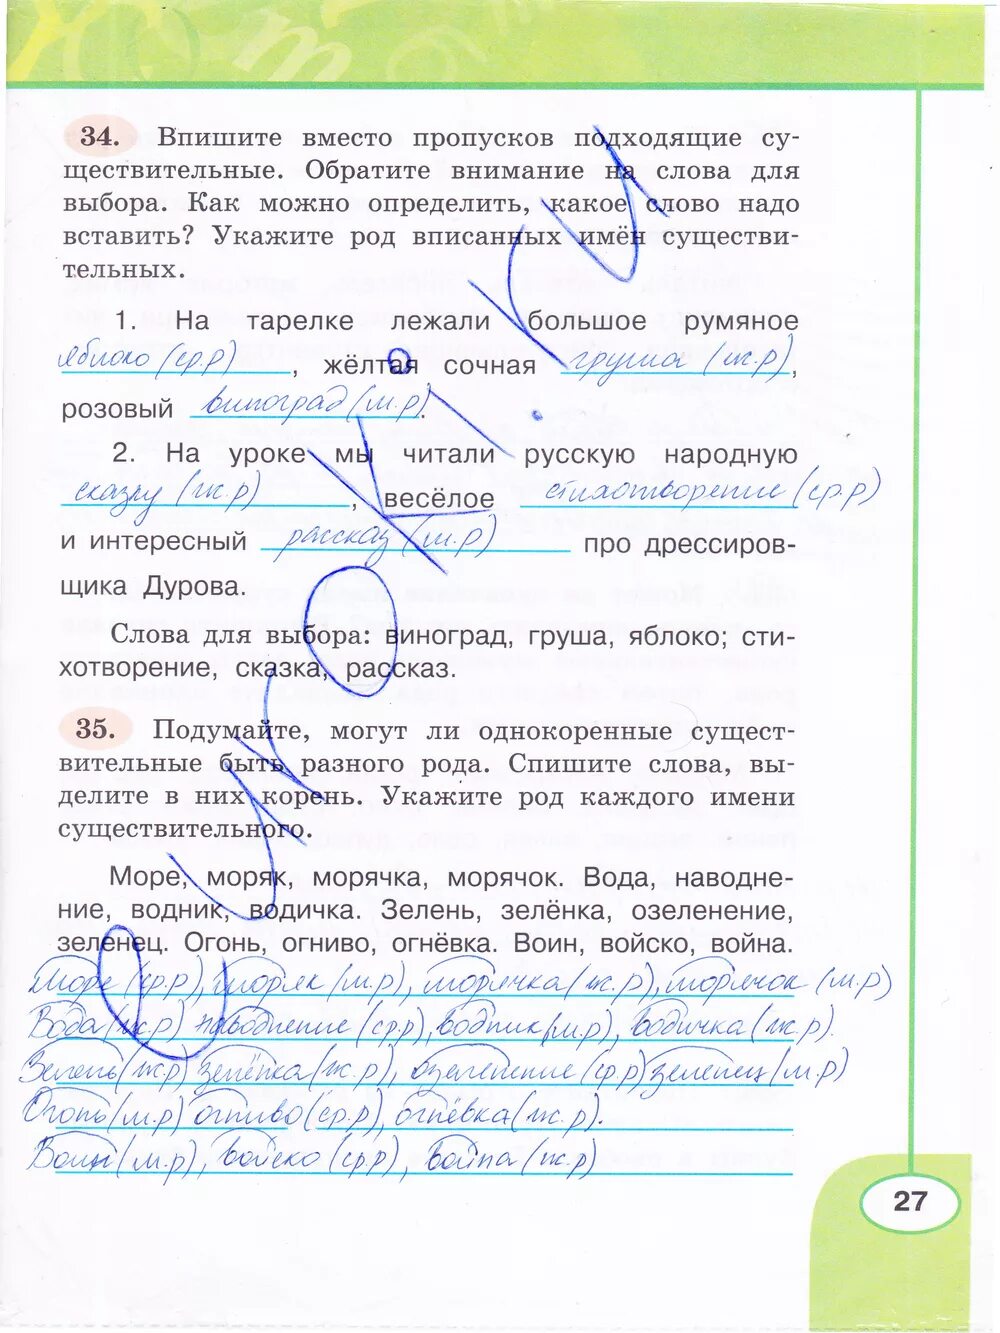 34. Впишите вместо пропусков подходящие су-
ществительные. Обратите внимание на слова для
выбора. Как можно определить, какое слово надо
вставить? Укажите род вписанных имён существи-
тельных.
1. На тарелке лежали большое румяное
яблоко (ср.р), жёлтая сочная груша (ж.р),
розовый виноград (м.р).
2. На уроке мы читали русскую народную
сказку (ж.р), весёлое стихотворение (ср.р)
и интересный рассказ (м.р) про дрессиров-
щика Дурова.
Слова для выбора: виноград, груша, яблоко; сти-
хотворение, сказка, рассказ.
35. Подумайте, могут ли однокоренные сущест-
вительные быть разного рода. Спишите слова, вы-
делите в них корень. Укажите род каждого имени
существительного.
Море, моряк, морячка, морячок. Вода, наводне-
ние, водник, водичка. Зелень, зелёнка, озеленение,
зеленец. Огонь, огниво, огнёвка. Воин, войско, война.
Море (ср.р), моряк (м.р), морячка (ж.р), морячок (м.р)
Вода (ж.р) наводнение (ср.р), водник (м.р), водичка (ж.р).
Зелень (ж.р) зелёнка (ж.р), озеленение (ср.р) зеленец (м.р)
Огонь (м.р) огниво (ср.р), огнёвка (ж.р).
Воин (м.р), войско (ср.р), война (ж.р)
27